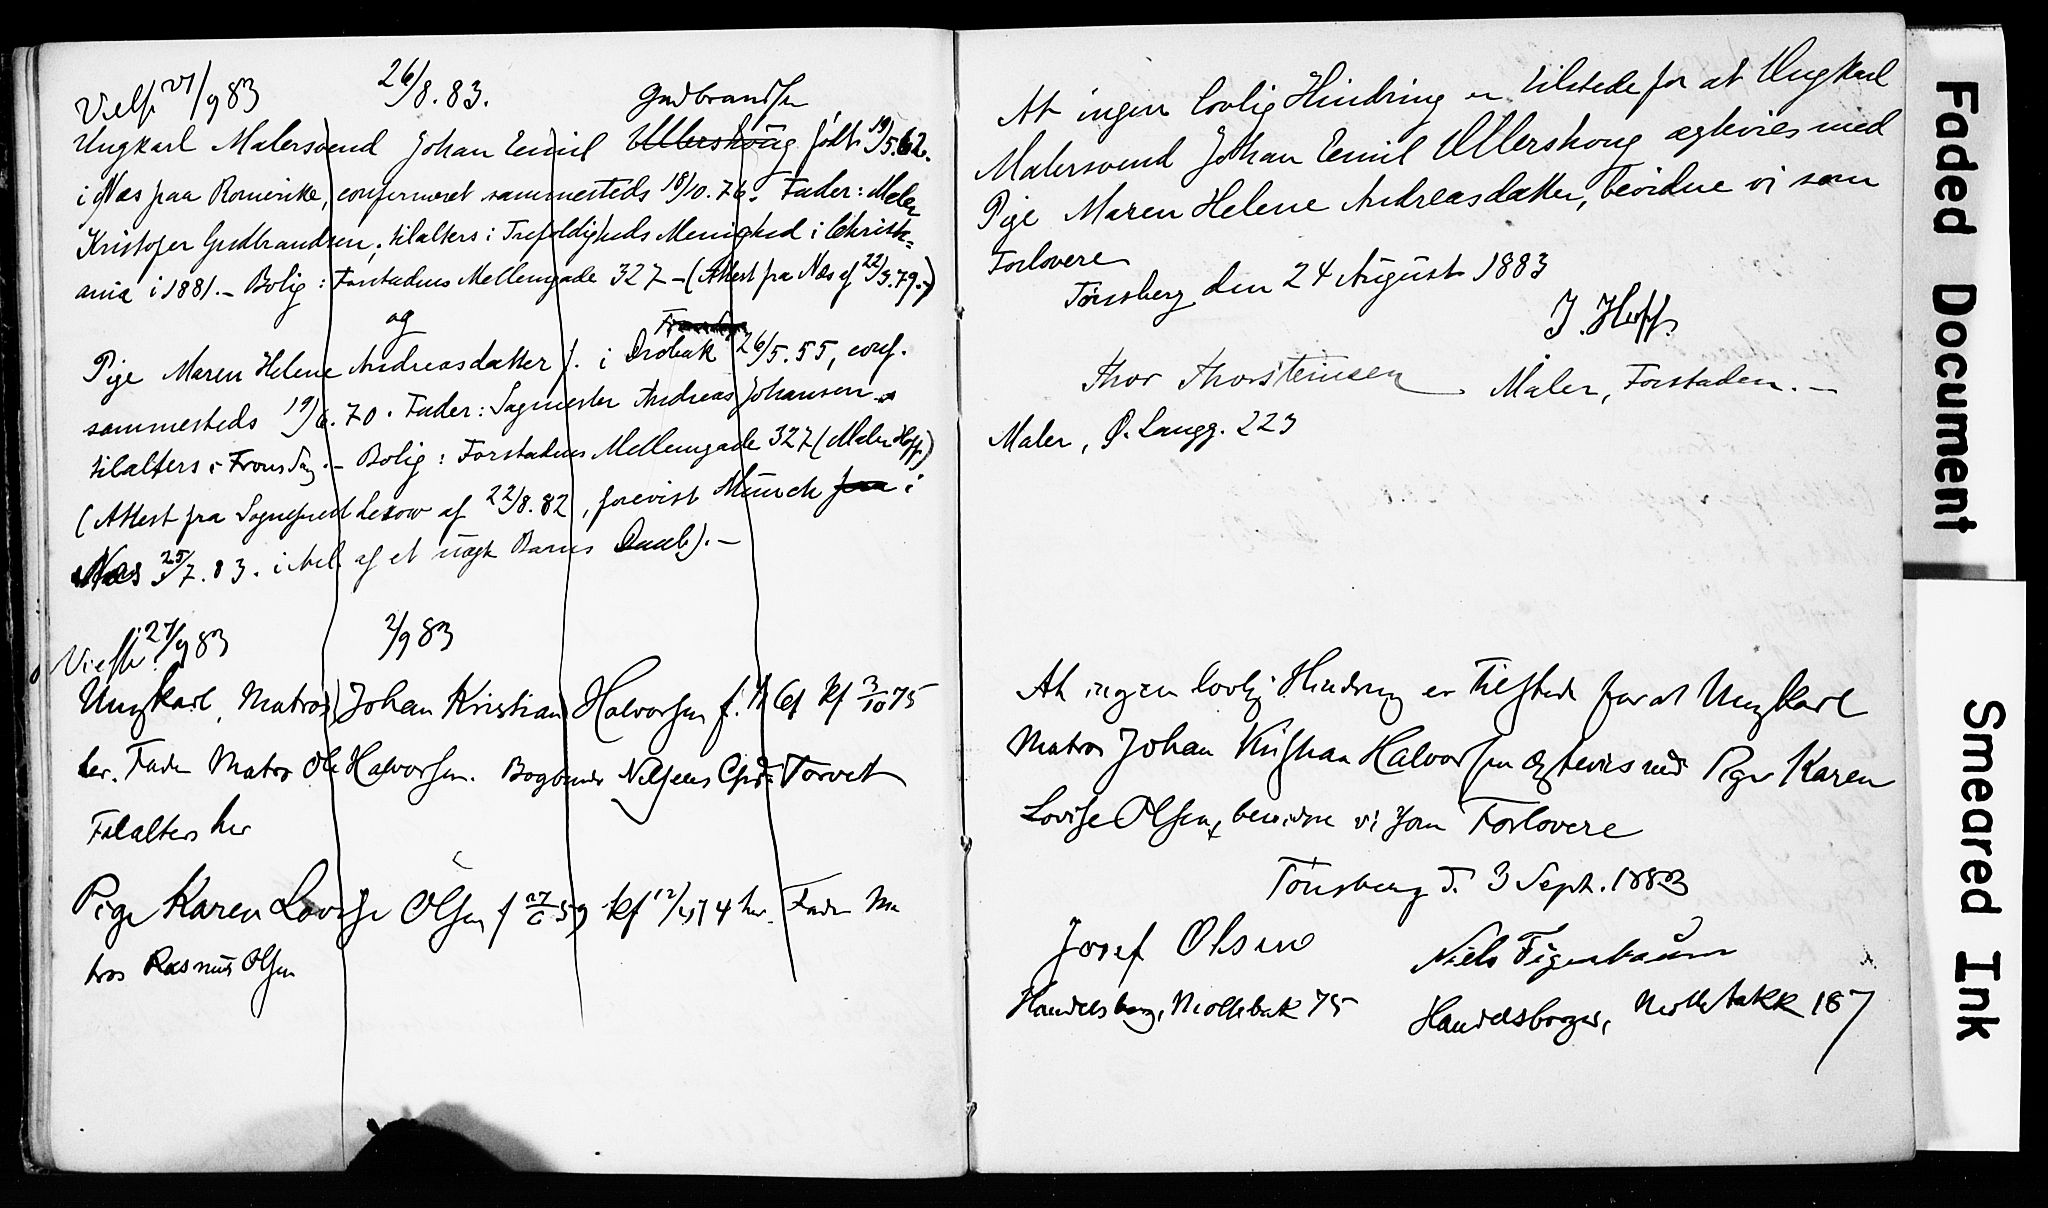 Vielse 21/9 83 26/8.83. Gudbrandsen
Ungkarl Malersvend Johan Emil Ullershoug født 19/5.62.
i Næs paa Romerike, confirmeret sammesteds 18/10.76. Fader: Maler
Kristofer Gudbrandsen, tilalters i Trefoldigheds Menighed i Christi=
ania i 1881.- Bolig: Forstadens Mellemgade 327 - (Attest fra Næs af 22/3.79.-)
og
Pige Maren Helene Andreasdatter f. i Drøbak 26/5.55, conf.
sammesteds 19/6.70. Fader: Sagmester Andreas Johansen
tilalters i Frons Sogn.- Bolig: Forstadens Mellemgade 327 (Maler Hoff)
(Attest fra Sognepræst af 22/8.82, forevist Munch fra i
Næs 25/7.83. i Anl. af et uægt Barns Daab).-
Vielse 27/9 83 2/9 83
Ungkarl, Matros Johan Kristian Halvorsen f. kf 3/10 75
her. Fader Matros Ole Halvorsen. Bogbinder Nilsens Torvet
Tilalters her
Pige Karen Lovise Olsen f 27/6 59 kf 12/4 74 her. Fader Ma
tros Rasmus Olsen
At ingen lovlig Hindring er tilstede for at Ungkarl
Malersvend Johan Emil Ullershoug ægtevies med
Pige Maren Helene Andreasdatter, bevidne vi som
Forlovere
Tønsberg den 24 August 1883
J. Hoff.
Thor Thorsteinsen Maler, Forstaden.-
Maler, Ø. Langg. 223
At ingen lovlig Hindring er Tilstede for at Ungkarl
Matros Johan Kristian Halvorsen ægtevies med Pige Karen
Lovise Olsen, bevidne vi som Forlovere
Tönsberg d. 3 Sept. 1883
Josef Olsen Niels Figenbaum
Handelsborg, Møllebak 75 Handelsborger, Møllebakk 187
Faded Document
Smeared Ink